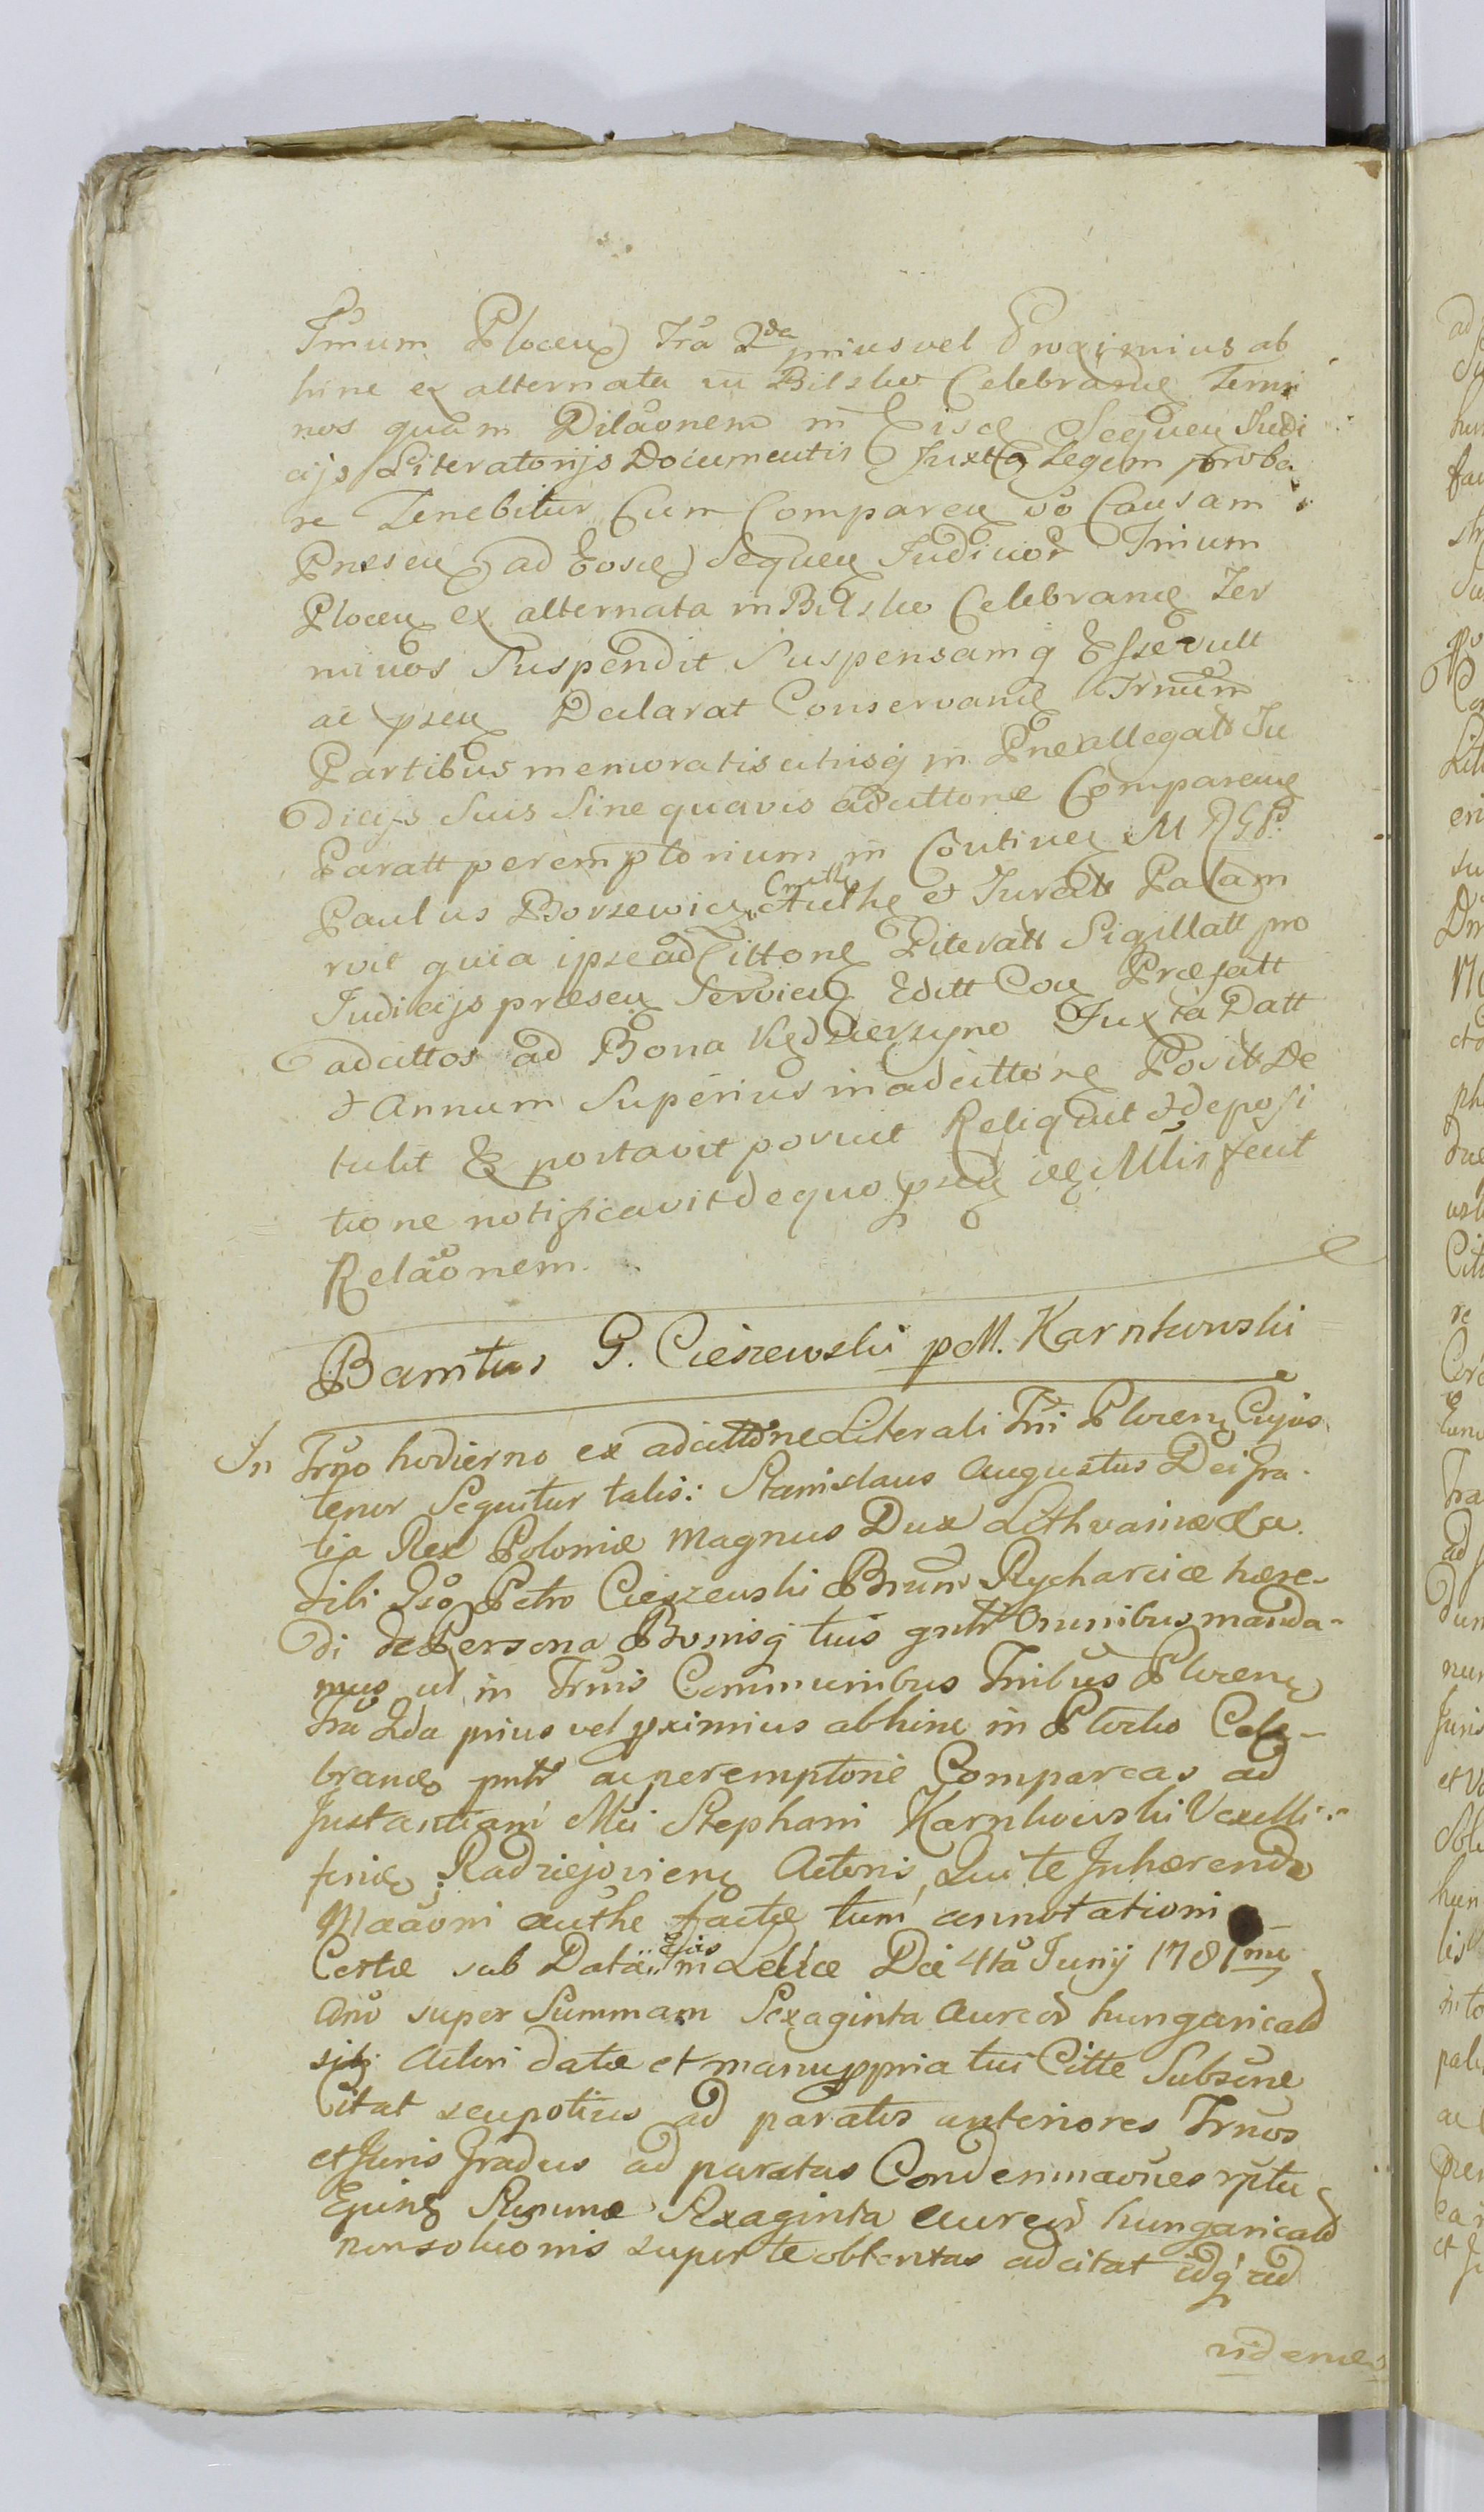 Tmum Plocen Fra 2da prius vel Proximius ab
hinc ex alternata in Bilsko Celebrand Termi
nos quam Dilaonem in Eisd Sequen Judi
cijs Literatorijs Documentis Juxta Legem proba
re Tenebitur Cum Comparen vo Causam
Præsen ad Eosd Sequen Judicior Tmum
Plocen ex alternata in Bilsko Celebrand Ter
minos Suspendit Suspensamq Esse vult
ac psen Declarat Conservand Trnum
Partibus memoratis utrisq in Præallegatt Ju
dicijs Suis Sine quavis adcittone Comparend
Paratt peremptorium in Continen M R G P
Paulus Borzewicz Cnetlis Authe et Juratt Palam
rvit quia ipse adcittone Literatt Sigillatt pro
Judicijs præsen Servien Editt Con Præfatt
adcittos ad Bona Kędzierzyno Juxta Datt
& Annum Superius in adcittone Posit De
tulit & portavit povuit Reliquit & deposi
tione notificavit de quo psen Mlis fecit
Relaonem.
Banitus G. Cieszewski p M. Karnkowski
In Trno hodierno ex adcittone Literali Tri Plocen Cujus
tenor Sequitur talis: Stanislaus Augustus Dei Gra-
tia Rex Poloniæ Magnus Dux Lithvaniæ &a.
Tibi Gso Petro Cieszewski Bnum Rycharcice hære-
di de Persona Bonisq tuis gnltr Omnibus manda-
mus ut in Trnis Communibus Tribus Plocen
Fra 2da prius vel pximius abhinc in Plocko Cele-
brand pntr ac peremptorie Compareas ad
Instantiam Mci Stephani Karnkowski Vexilli-
feridæ Radziejovien Actoris, Qui te Inhærendo
Maaoni authe factæ tum annotationi
Certæ sub Data in Ejus Lelice Die 4ta Junij 1781mi
Ano super Summam Sexaginta Aureor hungarical
sibi Actori datæ et manu ppria tui Citte Subscne
Citat seu potius ad paratos anteriores Trnos
et Juris Gradus ad paratas Condemnaones rptu
Ejusd Summæ Sexaginta aureor hungarical
non soluonis super te obtentas adcitat idq ad
vidend